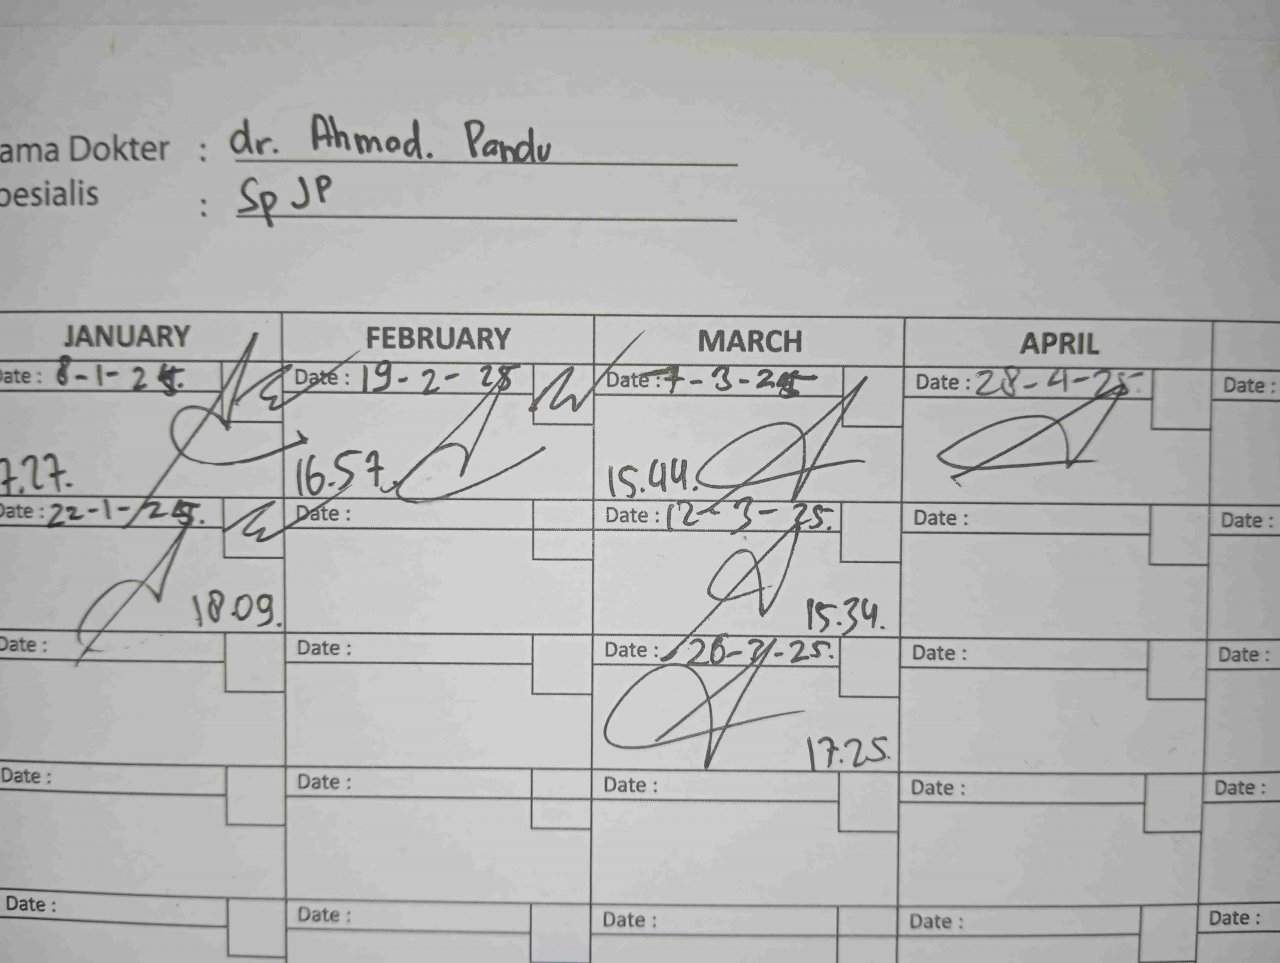 ama Dokter : dr. Ahmad. Pandu
pesialis : Sp JP
JANUARY FEBRUARY MARCH APRIL
Date : 8-1-25. Date : 19-2-25 Date : 7-3-25 Date : 28-4-25. Date :
7.27. 16.57. 15.44.
Date : 22-1-25. Date : Date : 12-3-25. Date : Date :
18.09. 15.34.
Date : Date : Date : 26-3-25. Date : Date :
17.25.
Date : Date : Date : Date : Date :
Date : Date : Date : Date : Date :